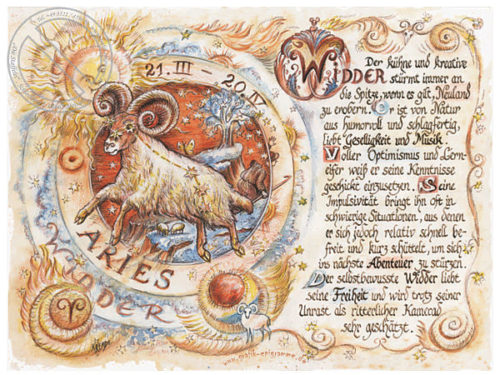 21. III – 20. IV
ARIES
Widder
Der kühne und kreative
WIDDER stürmt immer an
die Spitze, wenn es gilt, Neuland
zu erobern. Er ist von Natur
aus humorvoll und schlagfertig,
liebt Geselligkeit und Musik.
Voller Optimismus und Lern-
eifer weiß er seine Kenntnisse
geschickt einzusetzen. Seine
Impulsivität bringt ihn oft in
schwierige Situationen, aus denen
er sich jedoch relativ schnell be-
freit und kurz schüttelt, um sich
ins nächste Abenteuer zu stürzen.
Der selbstbewusste Widder liebt
seine Freiheit und wird trotz seiner
Unrast als ritterlicher Kamerad
sehr geschätzt.
www.grafik-epigramme.de